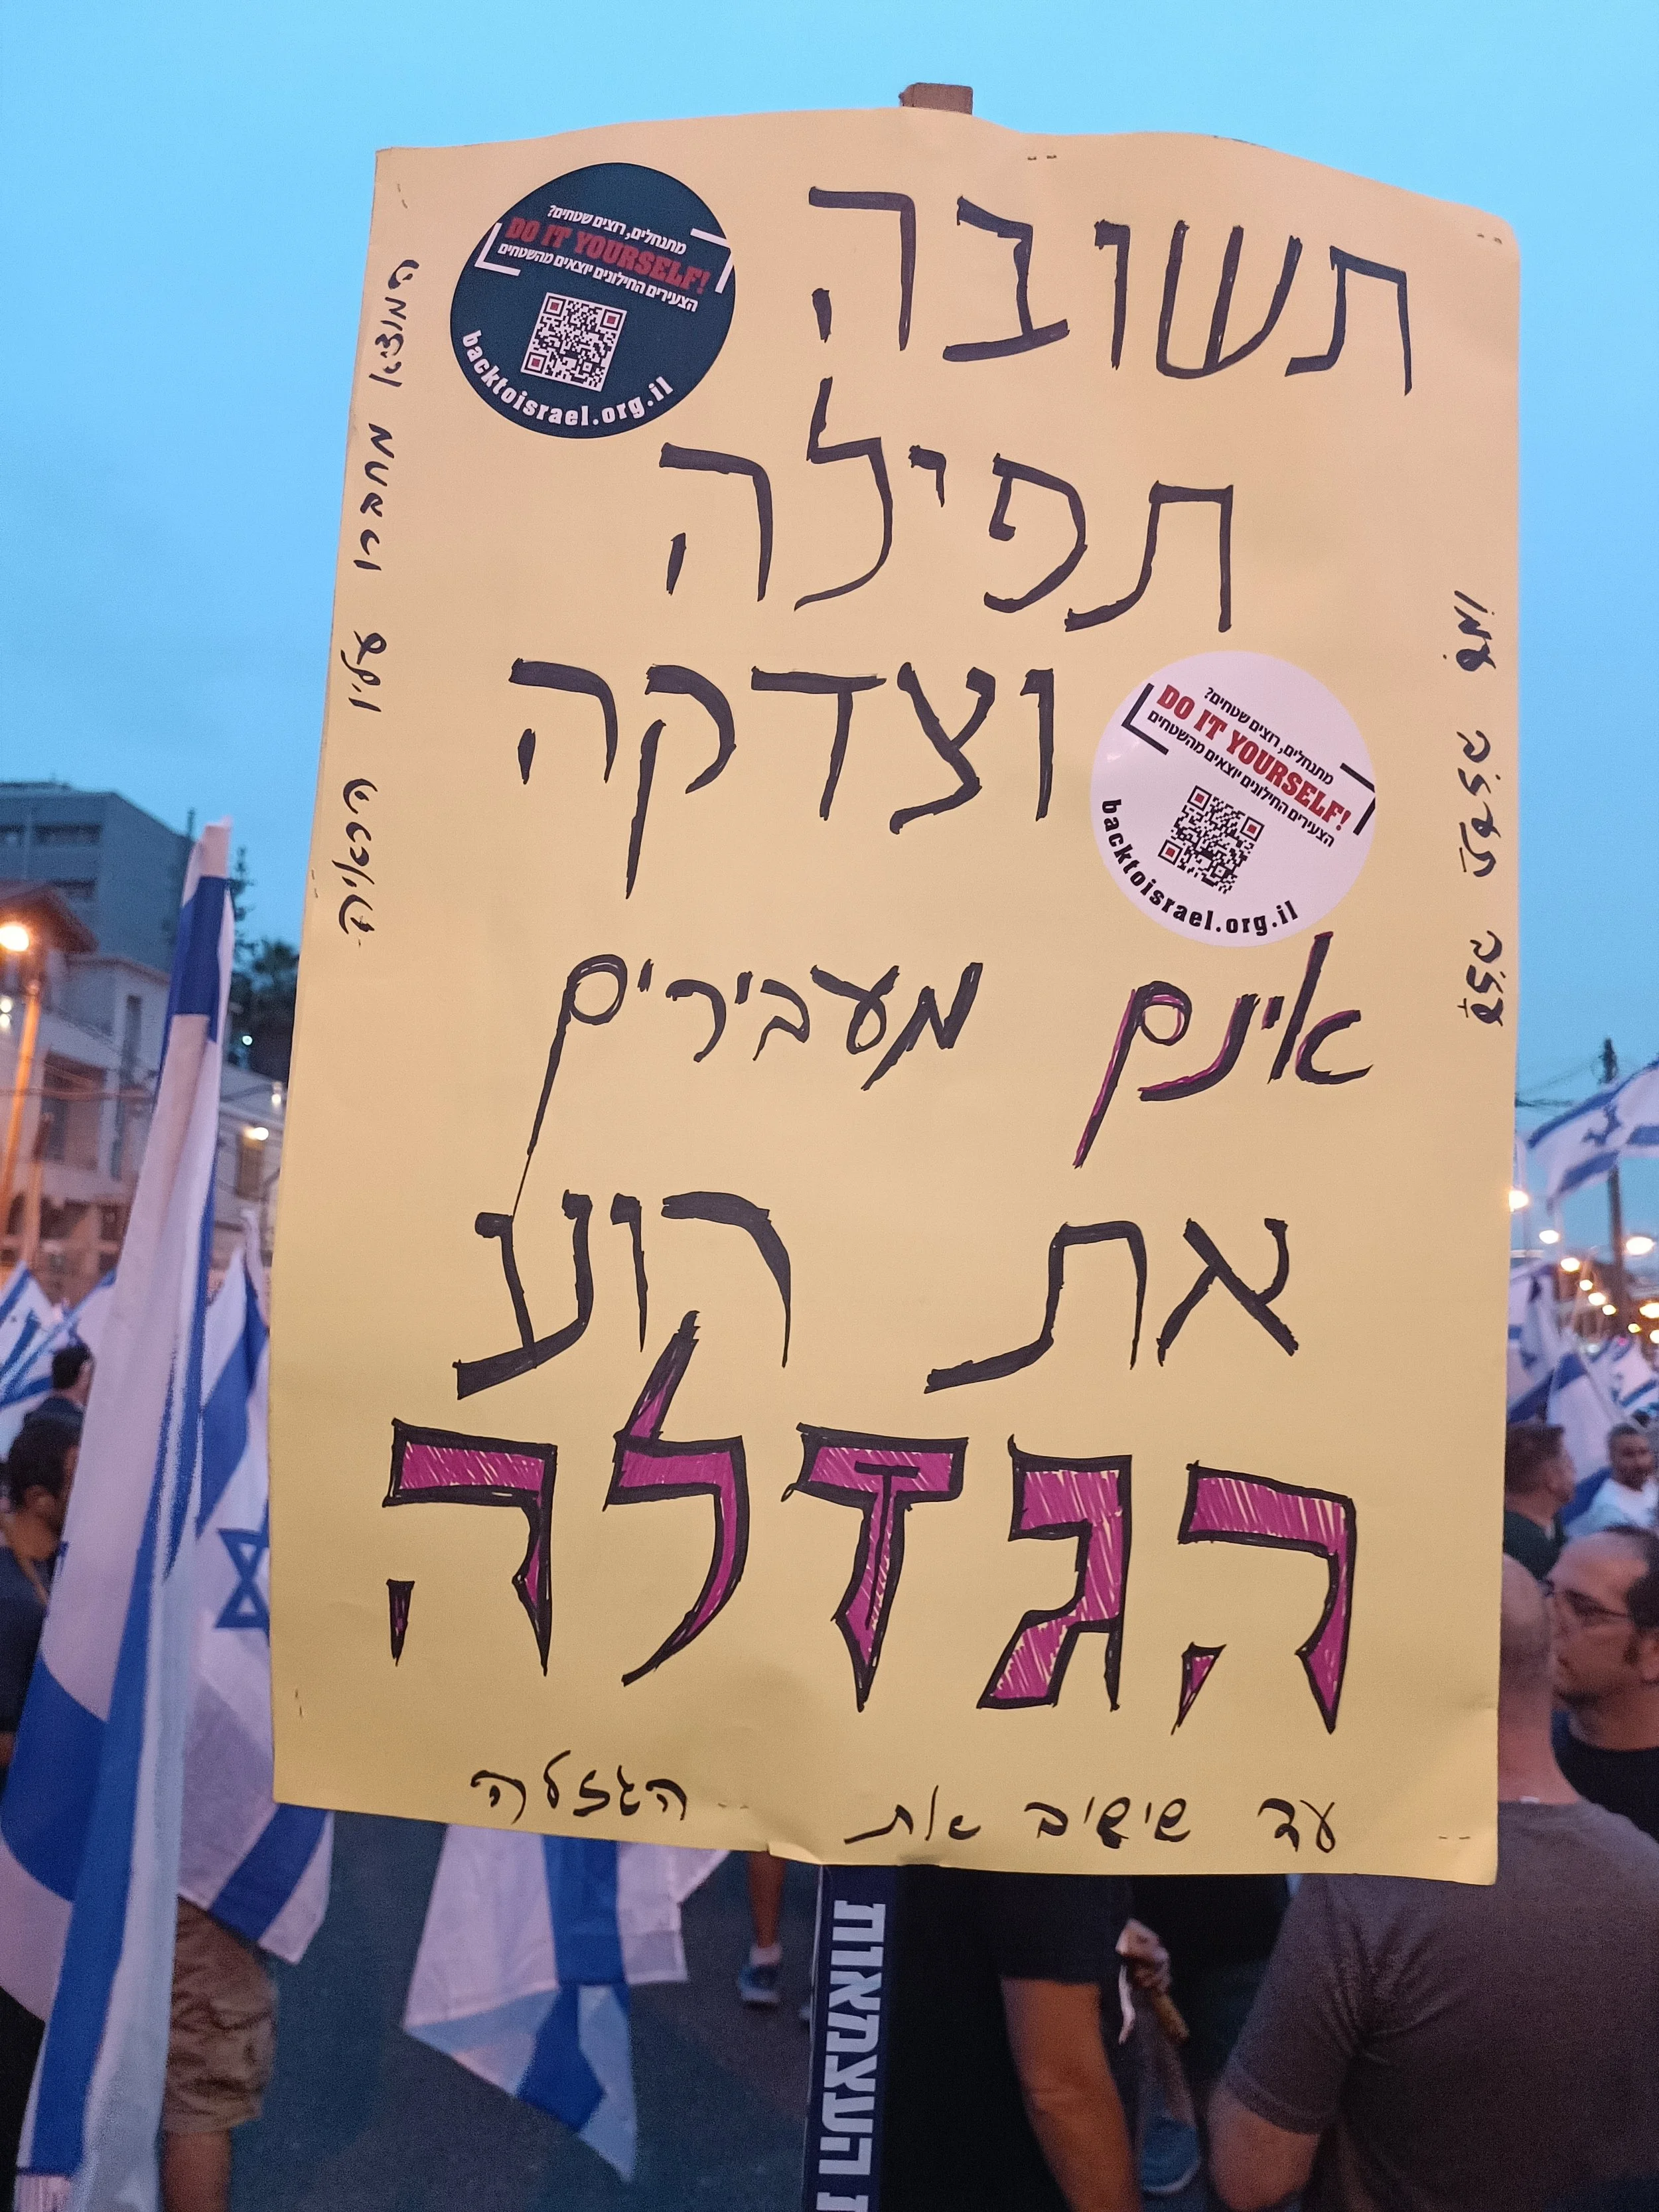 תשובה
תפילה
וצדקה
אינם מעבירים
את רוע
הגזלה
עד שישיב את הגזלה
המוציא מחברו עליו הראיה
מתנחלים, רוצים שטחים?
DO IT YOURSELF!
הצעירים החילונים יוצאים מהשטחים
backtoisrael.org.il
מתנחלים, רוצים שטחים?
DO IT YOURSELF!
הצעירים החילונים יוצאים מהשטחים
backtoisrael.org.il
העצמאות